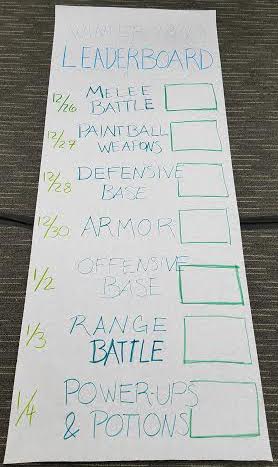 WINTER
LEADERBOARD
12/26 MELEE
BATTLE
12/27 PAINTBALL
WEAPONS
12/28 DEFENSIVE
BASE
12/30 ARMOR
1/2 OFFENSIVE
BASE
1/3 RANGE
BATTLE
1/4 POWER-UPS
& POTIONS